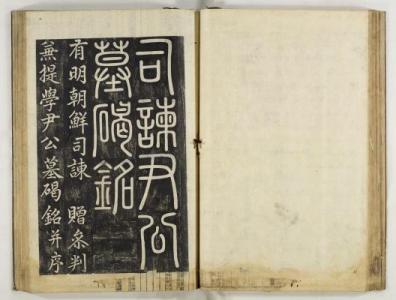 司諫尹公
墓碣銘
有明朝鮮司諫 贈叅判
兼提學尹公墓碣銘并序